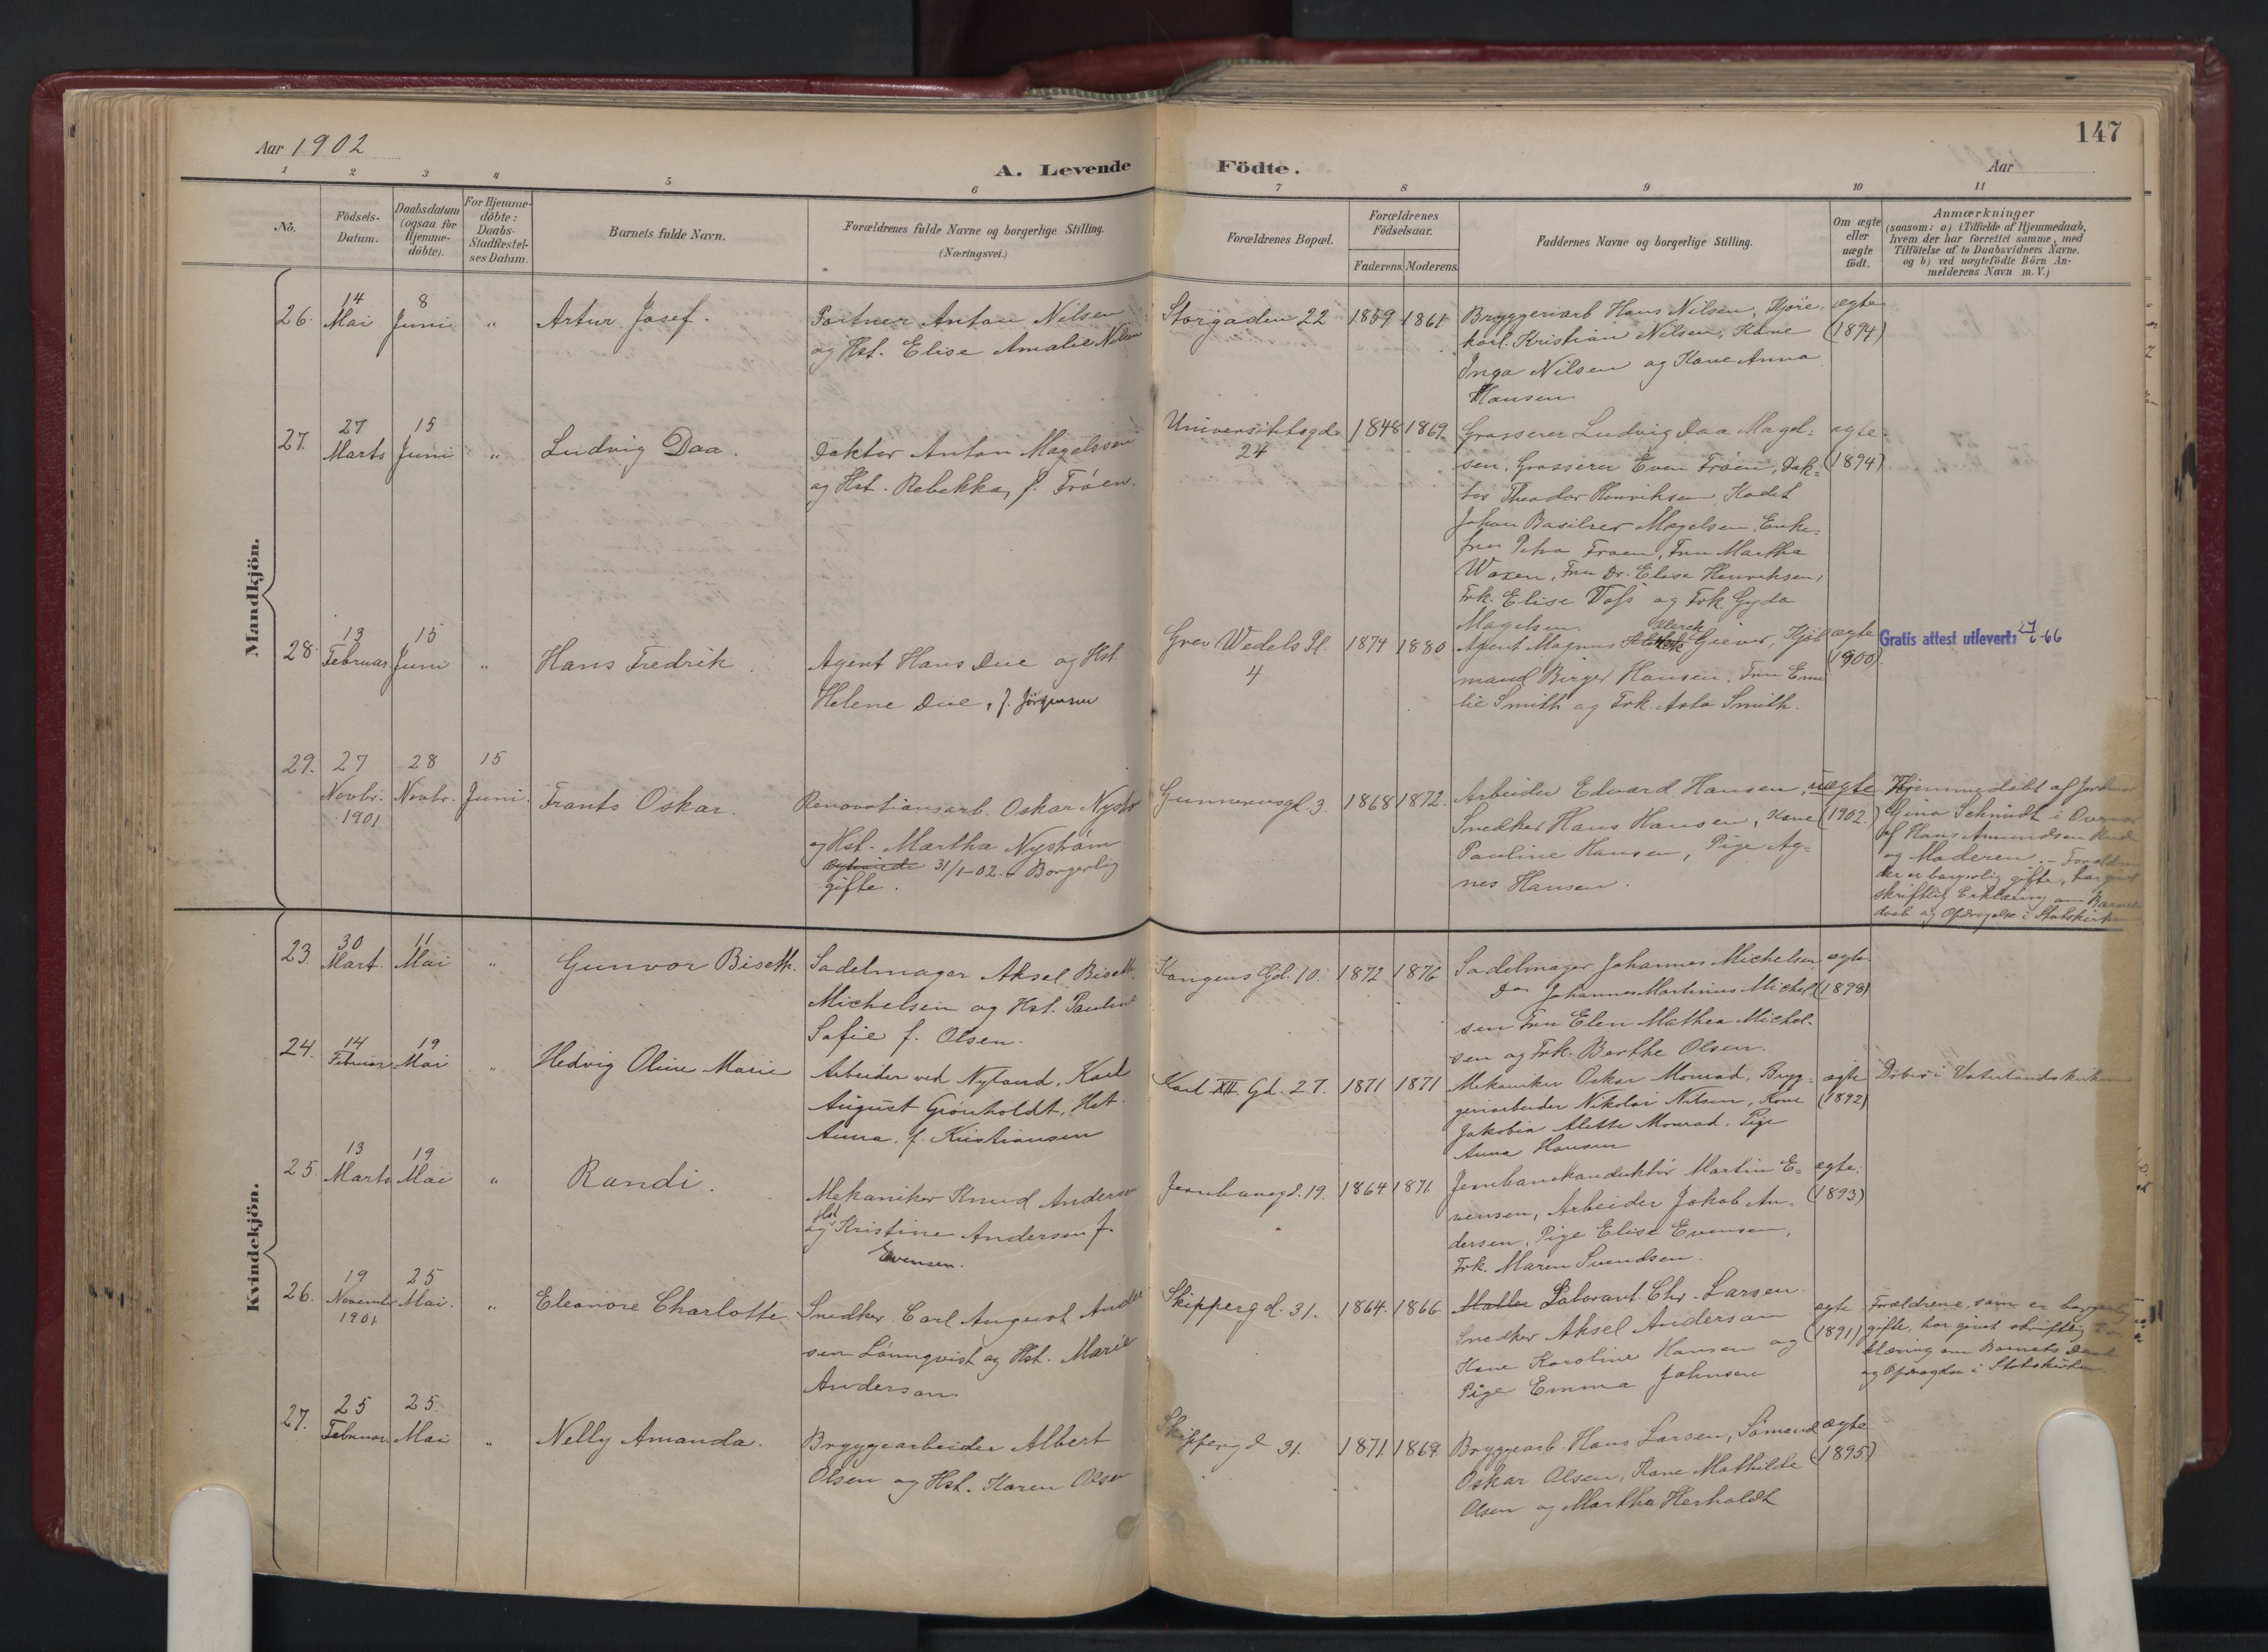 147
Aar 1902
A. Levende Födte.
Aar
1 2 3 4 5 6 7 8 9 10 11
No.
Födsels-
Datum.
Daabsdatum
(ogsaa for
Hjemme-
döbte).
For Hjemme-
döbte:
Daabs-
Stadfæstel-
ses Datum.
Barnets fulde Navn.
Forældrenes fulde Navne og borgerlige Stilling.
(Næringsvei.)
Forældrenes Bopæl.
Forældrenes
Födselsaar.
Faderens. Moderens.
Faddernes Navne og borgerlige Stilling.
Om ægte
eller
uægte
födt.
Anmærkninger
(saasom: a) i Tilfælde af Hjemmedaab,
hvem der har forrettet samme, med
Tilföielse af to Daabsvidners Navne.
og b) ved uægtefödte Börn An-
melderens Navn m. V.)
Mandkjön.
26.
14
Mai
8
Juni
"
Artur Josef.
Portner Anton Nilsen
og Hst. Elise Amalie Nilsen
Storgaden 22
1859 1861
Bryggeriarb Hans Nilsen, Kjøre
karl. Kristian Nilsen, Kone
Inga Nilsen og Kone Anna
Hansen
ægte
(1894)
27.
27
Marts
15
Juni
"
Ludvig Daa.
Doktor Anton Magelssen
og Hst. Rebekka, f. Frøen.
Universitetsgd.
24
1848 1869.
Grosserer Ludvig Daa Magel-
sen, Grosserer Even Frøen, Dok-
tor Theodor Henriksen, Kadet
Johan Basilier Magelsen, Enke-
fru Petra Frøen, Fru Martha
Woxen, Fru Dr. Elise Henriksen,
Frk. Elise Voss og Frk. Gyda
Magelsen.
ægte
(1894)
28.
13
Februar
15
Juni
"
Hans Fredrik.
Agent Hans Due og Hst.
Helene Due, f. Jörgensen
Grev Wedels Pl.
4
1874 1880
Agent Magnus Grever, Kjöb
mand Birger Hansen, Fru Emi
lie Smith og Frk. Asta Smith.
ægte
(1900)
Gratis attest utlevert: 6-66
29.
27
Novbr.
1901
28
Novbr.
15
Juni.
Frants Oskar.
Renovationsarb. Oskar Nystrøm
og Hst. Martha Nystrøm
31/1-02. Borgerlig
gifte.
Gunnerusgd. 3.
1868 1872.
Arbeider Edvard Hansen,
Snedker Hans Hansen, Kone
Pauline Hansen, Pige Ag-
nes Hansen.
uægte
(1902.)
Hjemmedøbt af Jordmor
Gina Schmidt i Overvær
af Hans Amundsen
og Moderen. - Forældrene
der er borgerlig gifte, har givet
skriftlig Erklæring om Barnets
daab og Opdragelse i Statskirken
Kvindekjön.
23.
30
Mart.
11
Mai
"
Gunvor Biseth.
Sadelmager Aksel Biseth
Michelsen og Hst. Pauline
Sofie f. Olsen.
Kongens Gd. 10.
1872 1876
Sadelmager Johannes Michelsen
Do Johannes Martinius Michel
sen Fru Elen Mathea Michel-
sen og Frk. Berthe Olsen.
ægte
(1898)
24.
14
Februar
19
Mai
"
Hedvig Oline Marie
Arbeider ved Nyland, Karl
August Grönholdt, Hst.
Anna, f. Kristiansen
Karl XII. Gd. 27.
1871 1871
Mekaniker Oskar Monrad, Bryg-
geriarbeider Nikolai Nilsen, Kone
Jakobia Alette Monrad. Pige
Anna Hansen
ægte
(1892)
Døbt i Vaterlandskirken
25.
13
Marts
19
Mai
"
Randi.
Mekaniker Knud Andersen
og Hst Kristine Andersen f.
Evensen.
Jernbanegd. 19.
1864 1871
Jernbanekonduktør Martin E-
vensen, Arbeider Jakob An-
dersen, Pige Elise Evensen,
Frk. Maren Svendsen.
ægte.
(1893)
26.
19
November
1901
25
Mai.
"
Eleonore Charlotte
Snedker Carl August Ander
sen Lönnqvist og Hst. Marie
Anderson
Skippergd. 31.
1864. 1866
Laborant. Chr. Larsen
Snedker Aksel Anderson
Kone Karoline Hansen og
Pige Emma Johnsen
ægte
(1891)
Forældrene, som er borgerlig
gifte, har givet skriftlig Er-
klæring om Barnets Daab
og Opdragelse i Statskirken
27.
25
Februar
25.
Mai
"
Nelly Amanda.
Bryggearbeider Albert
Olsen og Hst. Karen Olsen
Skippergd 31.
1871 1869.
Bryggearb. Hans Larsen, Sömand
Oskar Olsen, Kone Mathilde
Olsen og Martha Herholdt
ægte
(1895.)